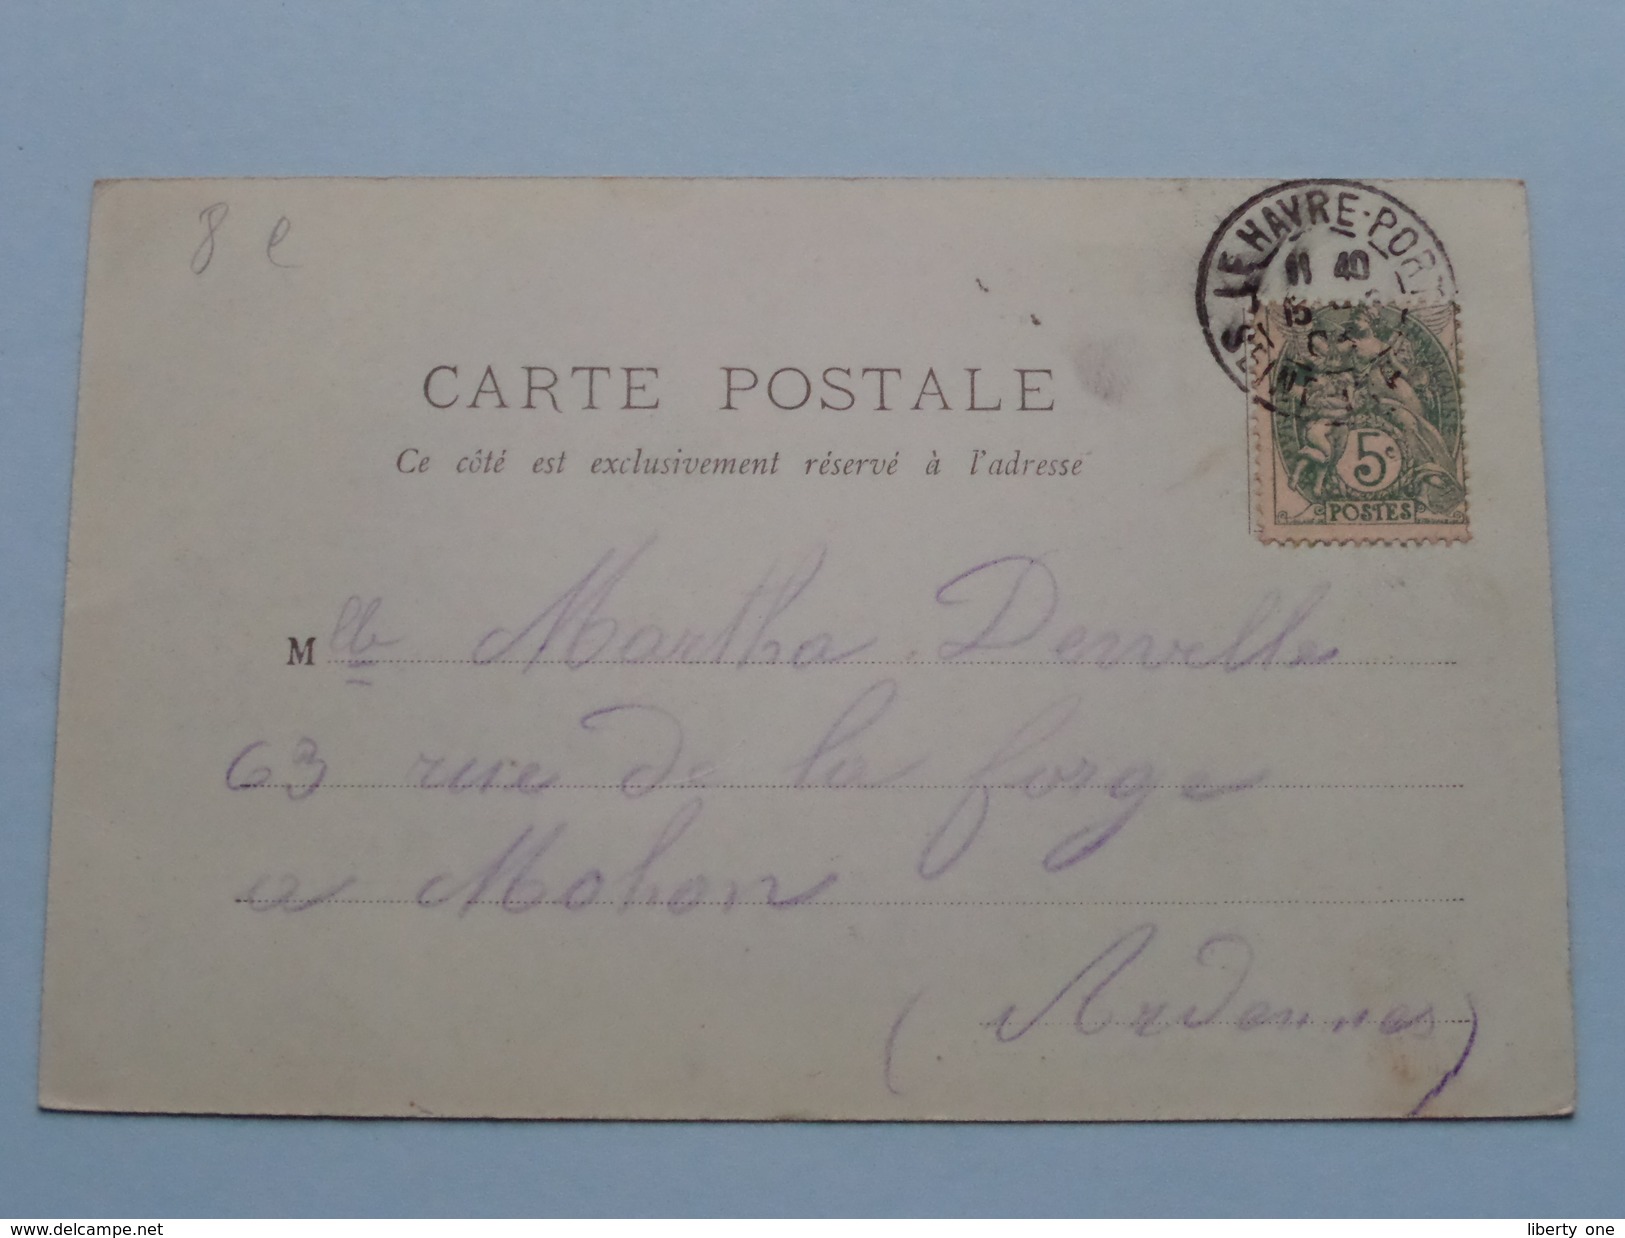 8 e
LE HAVRE-PORT
11 40
15
CARTE POSTALE
Ce côté est exclusivement réservé à l'adresse
5c
POSTES
Mlle Martha Derville
63 rue de la forge
a Mohon
(Ardennes)
www.delcampe.net
liberty one